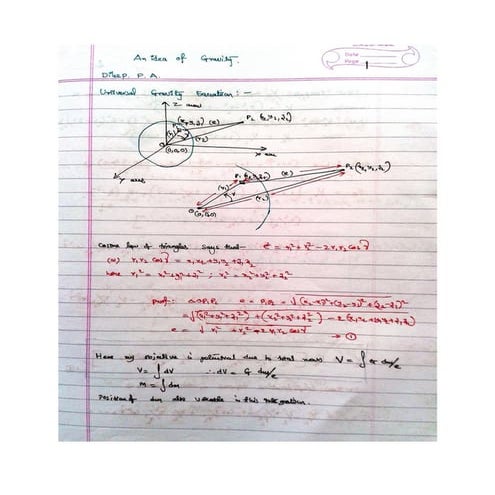 An idea of Gravity.
Date
Page 1
Dileep. P. A.
Universal Gravity Equation: -
Z axis
P₁ (x₁, y₁, z₁) (e) P₂ (x₂, y₂, z₂)
(r₁) (r₂)
O (0,0,0) X axis
Y axis
P₁ (x₁, y₁, z₁) (e) P₂ (x₂, y₂, z₂)
(r₁) γ (r₂)
O (0,0,0)
Cosine law of triangles says that e² = r₁² + r₂² - 2r₁r₂ cos γ
(or) r₁r₂ cos γ = x₁x₂ + y₁y₂ + z₁z₂
here r₁² = x₁² + y₁² + z₁² ; r₂² = x₂² + y₂² + z₂²
proof: △OP₁P₂ e = P₁P₂ = √(x₂-x₁)² + (y₂-y₁)² + (z₂-z₁)²
= √(x₁² + y₁² + z₁²) + (x₂² + y₂² + z₂²) - 2(x₁x₂ + y₁y₂ + z₁z₂)
e = √r₁² + r₂² - 2r₁r₂ cos γ → ①
Here my objective is potential due to total mass V = ∫ G dm/e
V = ∫ dV ∴ dV = G dm/e
M = ∫ dm
Position of dm also variable in this integration.